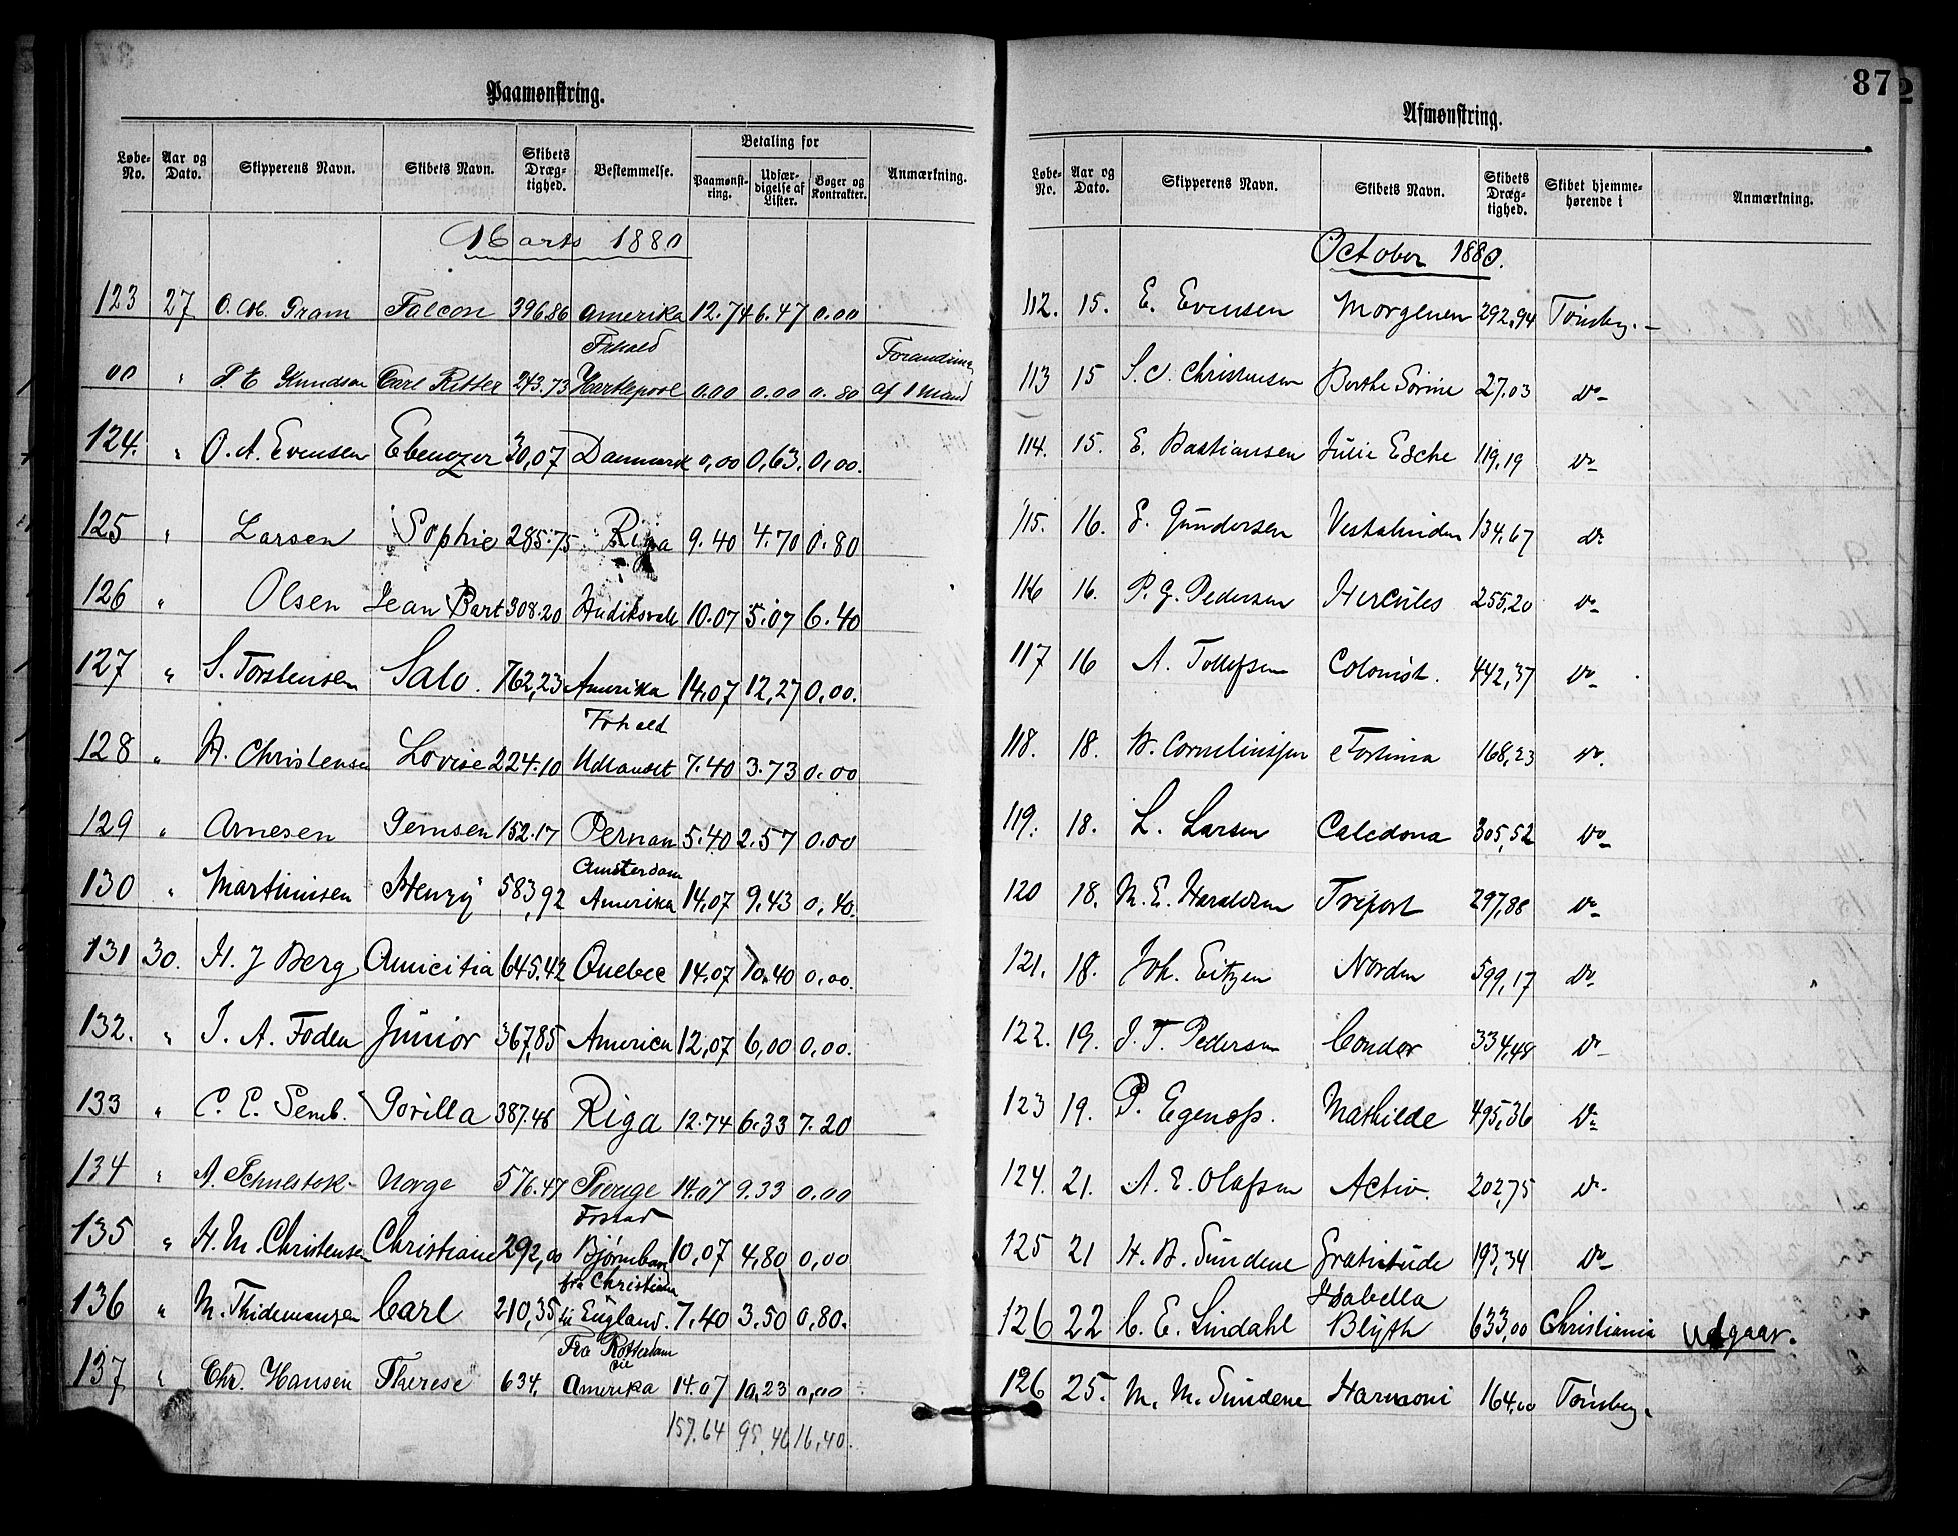 Paamønstring.
Løbe-No. Aar og Dato. Skipperens Navn. Skibets Navn. Skibets Dræg-tighed. Bestemmelse. Betaling for Paamønst-ring. Udfær-digelse af Lister. Bøger og Kontrakter. Anmærkning.
Marts 1880
123 27 O. M. Gram Falcon 396.86 Amerika 12.74 6.47 0.00
Frhald
00 " P E Knudsen Carl Ritter 243.73 Hartlepool 0.00 0.00 0.80 af 1 Mand
124. " O. A. Evensen Ebenezer 30,07 Danmark 0,00 0,63. 0,00.
125 " Larsen Sophie 285.75 Riga 9.40 4.70 0.80
126 " Olsen Jean Bart 308.20 Hudiksvall 10.07 5.07 6.40
127 " S. Torstensen Salo. 762,23 Amerika 14,07 12,27 0,00.
Frhald
128 " H. Christensen Lovise 224.10 Udlandet 7.40 3.73 0.00
129 " Arnesen Gemsen 152.17 Pernau 5.40 2.57 0.00
Amsterdam
130 " Martinusen Henry 583,92 Amerika 14,07 9,43 0,40.
131 30. H. J Berg Amicitia 645.42 Quebec 14.07 10.40 0,00.
132. " J. A. Foden Junior 367,85 America 12,07 6,00 0,00.
133 " C. E. Semb. Gorilla 387.46 Riga 12.74 6.33 7.20
134 " A. Norge 576.47 Sverige 14.07 9.33 0.00
135 " H. M. Christensen Christiane 292,00 10,07 4,80 0,00
fra Christiania
136 " M. Thidemansen Carl 210,35 til England. 7.40 3.50 0,80.
Fra Rotterdam
til
137 " Chr. Hansen Therese 634, Amerika 14.07 10,23 0,00
157.64 95,46 16,40.
87
Afmønstring.
Løbe-No. Aar og Dato. Skipperens Navn. Skibets Navn. Skibets Dræg-tighed. Skibet hjemme-hørende i Anmærkning.
October 1880.
112. 15. E. Evensen Morgenen 292,94 Tønsbg.
113 15 S. Christensen Berthe Sorine 27.03 Do
114. 15. E. Bastiansen Julie Esche 119,19 Do
115. 16. G. Gundersen Vestalinden 134,67 Do
116 16. P. G. Pedersen Hercules 255,20 Do
117 16 A. Tollefsen Colonist. 442,37 Do
118. 18. B. Corneliussen Fortuna 168,23 Do.
119. 18. L. Larsen Caledonia 305,52 Do
120 18. M. E. Haraldsen Treport 297,88 Do
121. 18. Joh. Eitzen Norden 599,17 Do
122. 19. J. T. Pedersen Condor 334,48 Do
123 19. P. Egenæss. Mathilde 495,36 Do
124. 21. A. E. Olafsen Activ. 202,75 Do
125 21 H. B. Sundene Gratitude 193,34 Do
Isabella
126 22 C. E. Lindahl Blyth 633,00 Christiania Udgaar.
126 25. M. M. Sundene Harmoni 164,00 Tønsbg.